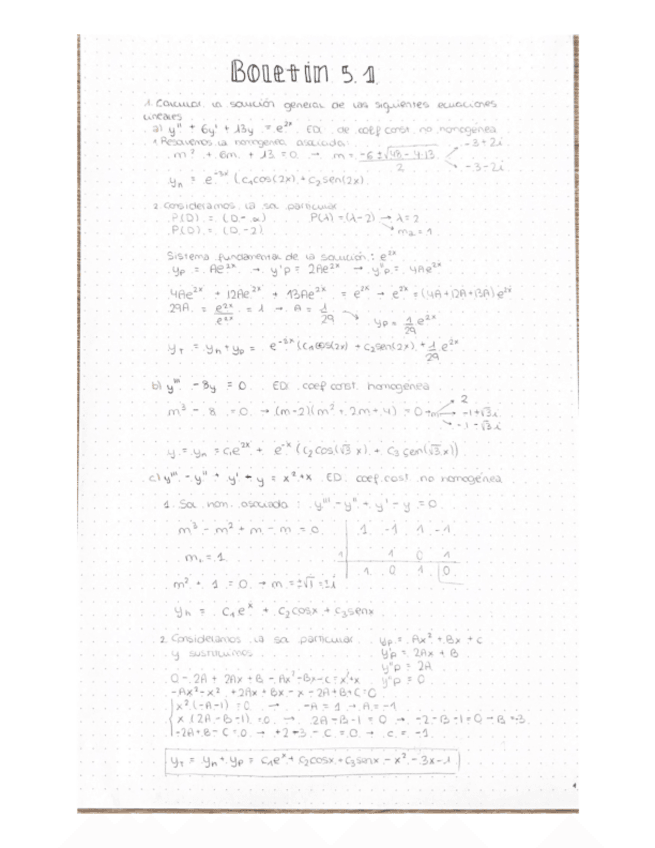 Boletin 5.1
1. Calcular la solución general de las siguientes ecuaciones
lineales
a) y'' + 6y' + 13y = e^2x ED de coef const. no homogénea
1. Resolvemos la homogénea asociada:
m² + 6m + 13 = 0 → m = -6 ± √48 - 4·13 / 2 → -3+2i
→ -3-2i
yh = e^-3x (c1cos(2x) + c2sen(2x)
2. Consideramos la sol particular
P(D) = (D - α) P(λ) = (λ-2) → λ = 2
P(D) = (D - 2) → m2 = 1
Sistema fundamental de la solución: e^2x
yp = Ae^2x → y'p = 2Ae^2x → y''p = 4Ae^2x
4Ae^2x + 12Ae^2x + 13Ae^2x = e^2x → e^2x = (4A+12A+13A)e^2x
29A = e^2x/e^2x = 1 → A = 1/29 → yp = 1/29 e^2x
yT = yh + yp = e^-3x (c1cos(2x) + c2sen(2x) + 1/29 e^2x
b) y''' - 8y = 0 ED: coef const. homogénea
m³ - 8 = 0 → (m-2)(m² + 2m + 4) = 0 → m → 2
→ -1+√3i
→ -1-√3i
y = yh = c1e^2x + e^-x (c2cos(√3 x) + c3sen(√3 x))
c) y''' - y'' + y' - y = x² + x ED: coef. cost. no homogénea
1. Sol hom. asociada: y''' - y'' + y' - y = 0
m³ - m² + m - m = 0 1 -1 1 -1
m1 = 1 1 1 0 1
1 0 1 0
m² + 1 = 0 → m = ±√1 = ±i
yh = c1e^x + c2cosx + c3senx
2. Consideramos la sol particular yp = Ax² + Bx + c
y sustituimos y'p = 2Ax + B
y''p = 2A
0 - 2A + 2Ax + B - Ax² - Bx - C = x² + x y'''p = 0
-Ax² - x² + 2Ax + Bx - x - 2A + B + C = 0
x²(-A-1) = 0 → -A = 1 → A = -1
x(2A - B - 1) = 0 → 2A - B - 1 = 0 → -2 - B - 1 = 0 → B = -3
-2A + B - C = 0 → +2 + 3 - C = 0 → c = -1
yT = yh + yp = c1e^x + c2cosx + c3senx - x² - 3x - 1